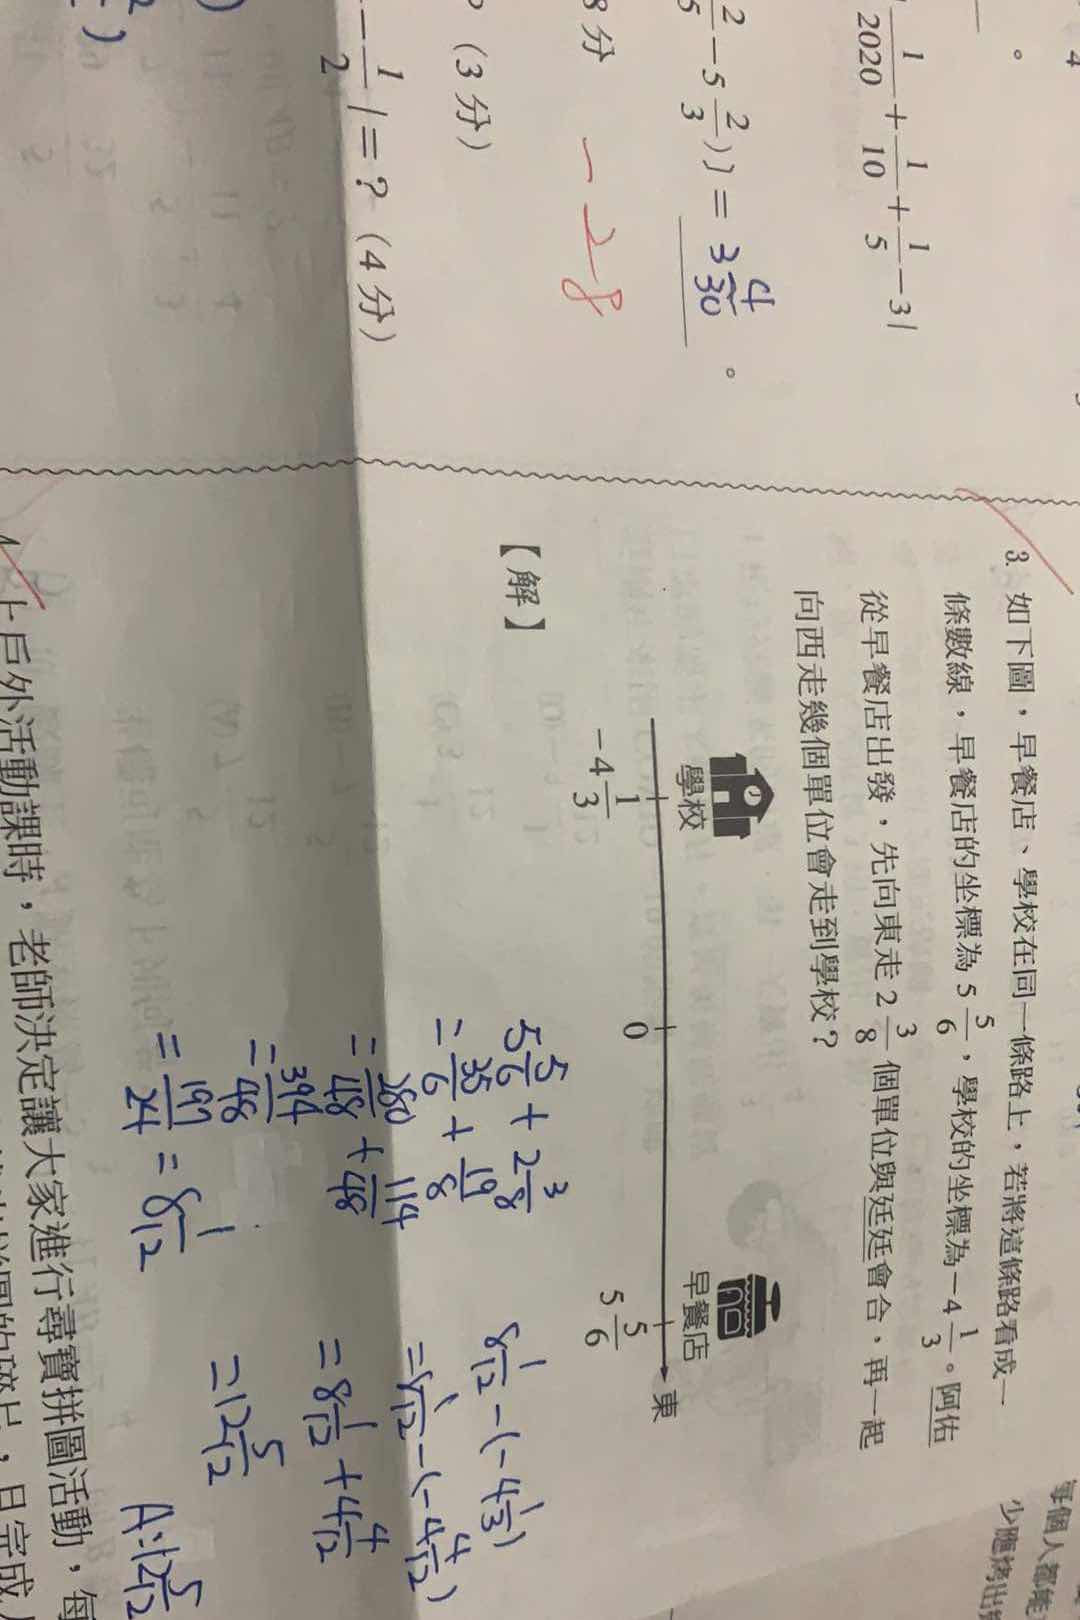 4
。
1/2020 + 1/10 + 1/5 - 3|
2/5 - 5 2/3)] = 3 4/30 。
8分
-28
(3分)
- 1/2 | = ? (4分)
3. 如下圖，早餐店、學校在同一條路上，若將這條路看成一
條數線，早餐店的坐標為 5 5/6，學校的坐標為 -4 1/3。阿佑
從早餐店出發，先向東走 2 3/8 個單位與廷廷會合，再一起
向西走幾個單位會走到學校？
學校
早餐店
東
-4 1/3
0
5 5/6
【解】
5 5/6 + 2 3/8
= 35/6 + 19/8
= 280/48 + 114/48
= 394/48
= 197/24 = 8 1/12
8 1/12 - (-4 1/3)
= 8 1/12 - (-4 4/12)
= 8 1/12 + 4 4/12
= 12 5/12
A: 12 5/12
上戶外活動課時，老師決定讓大家進行尋寶拼圖活動，每
每個人都能